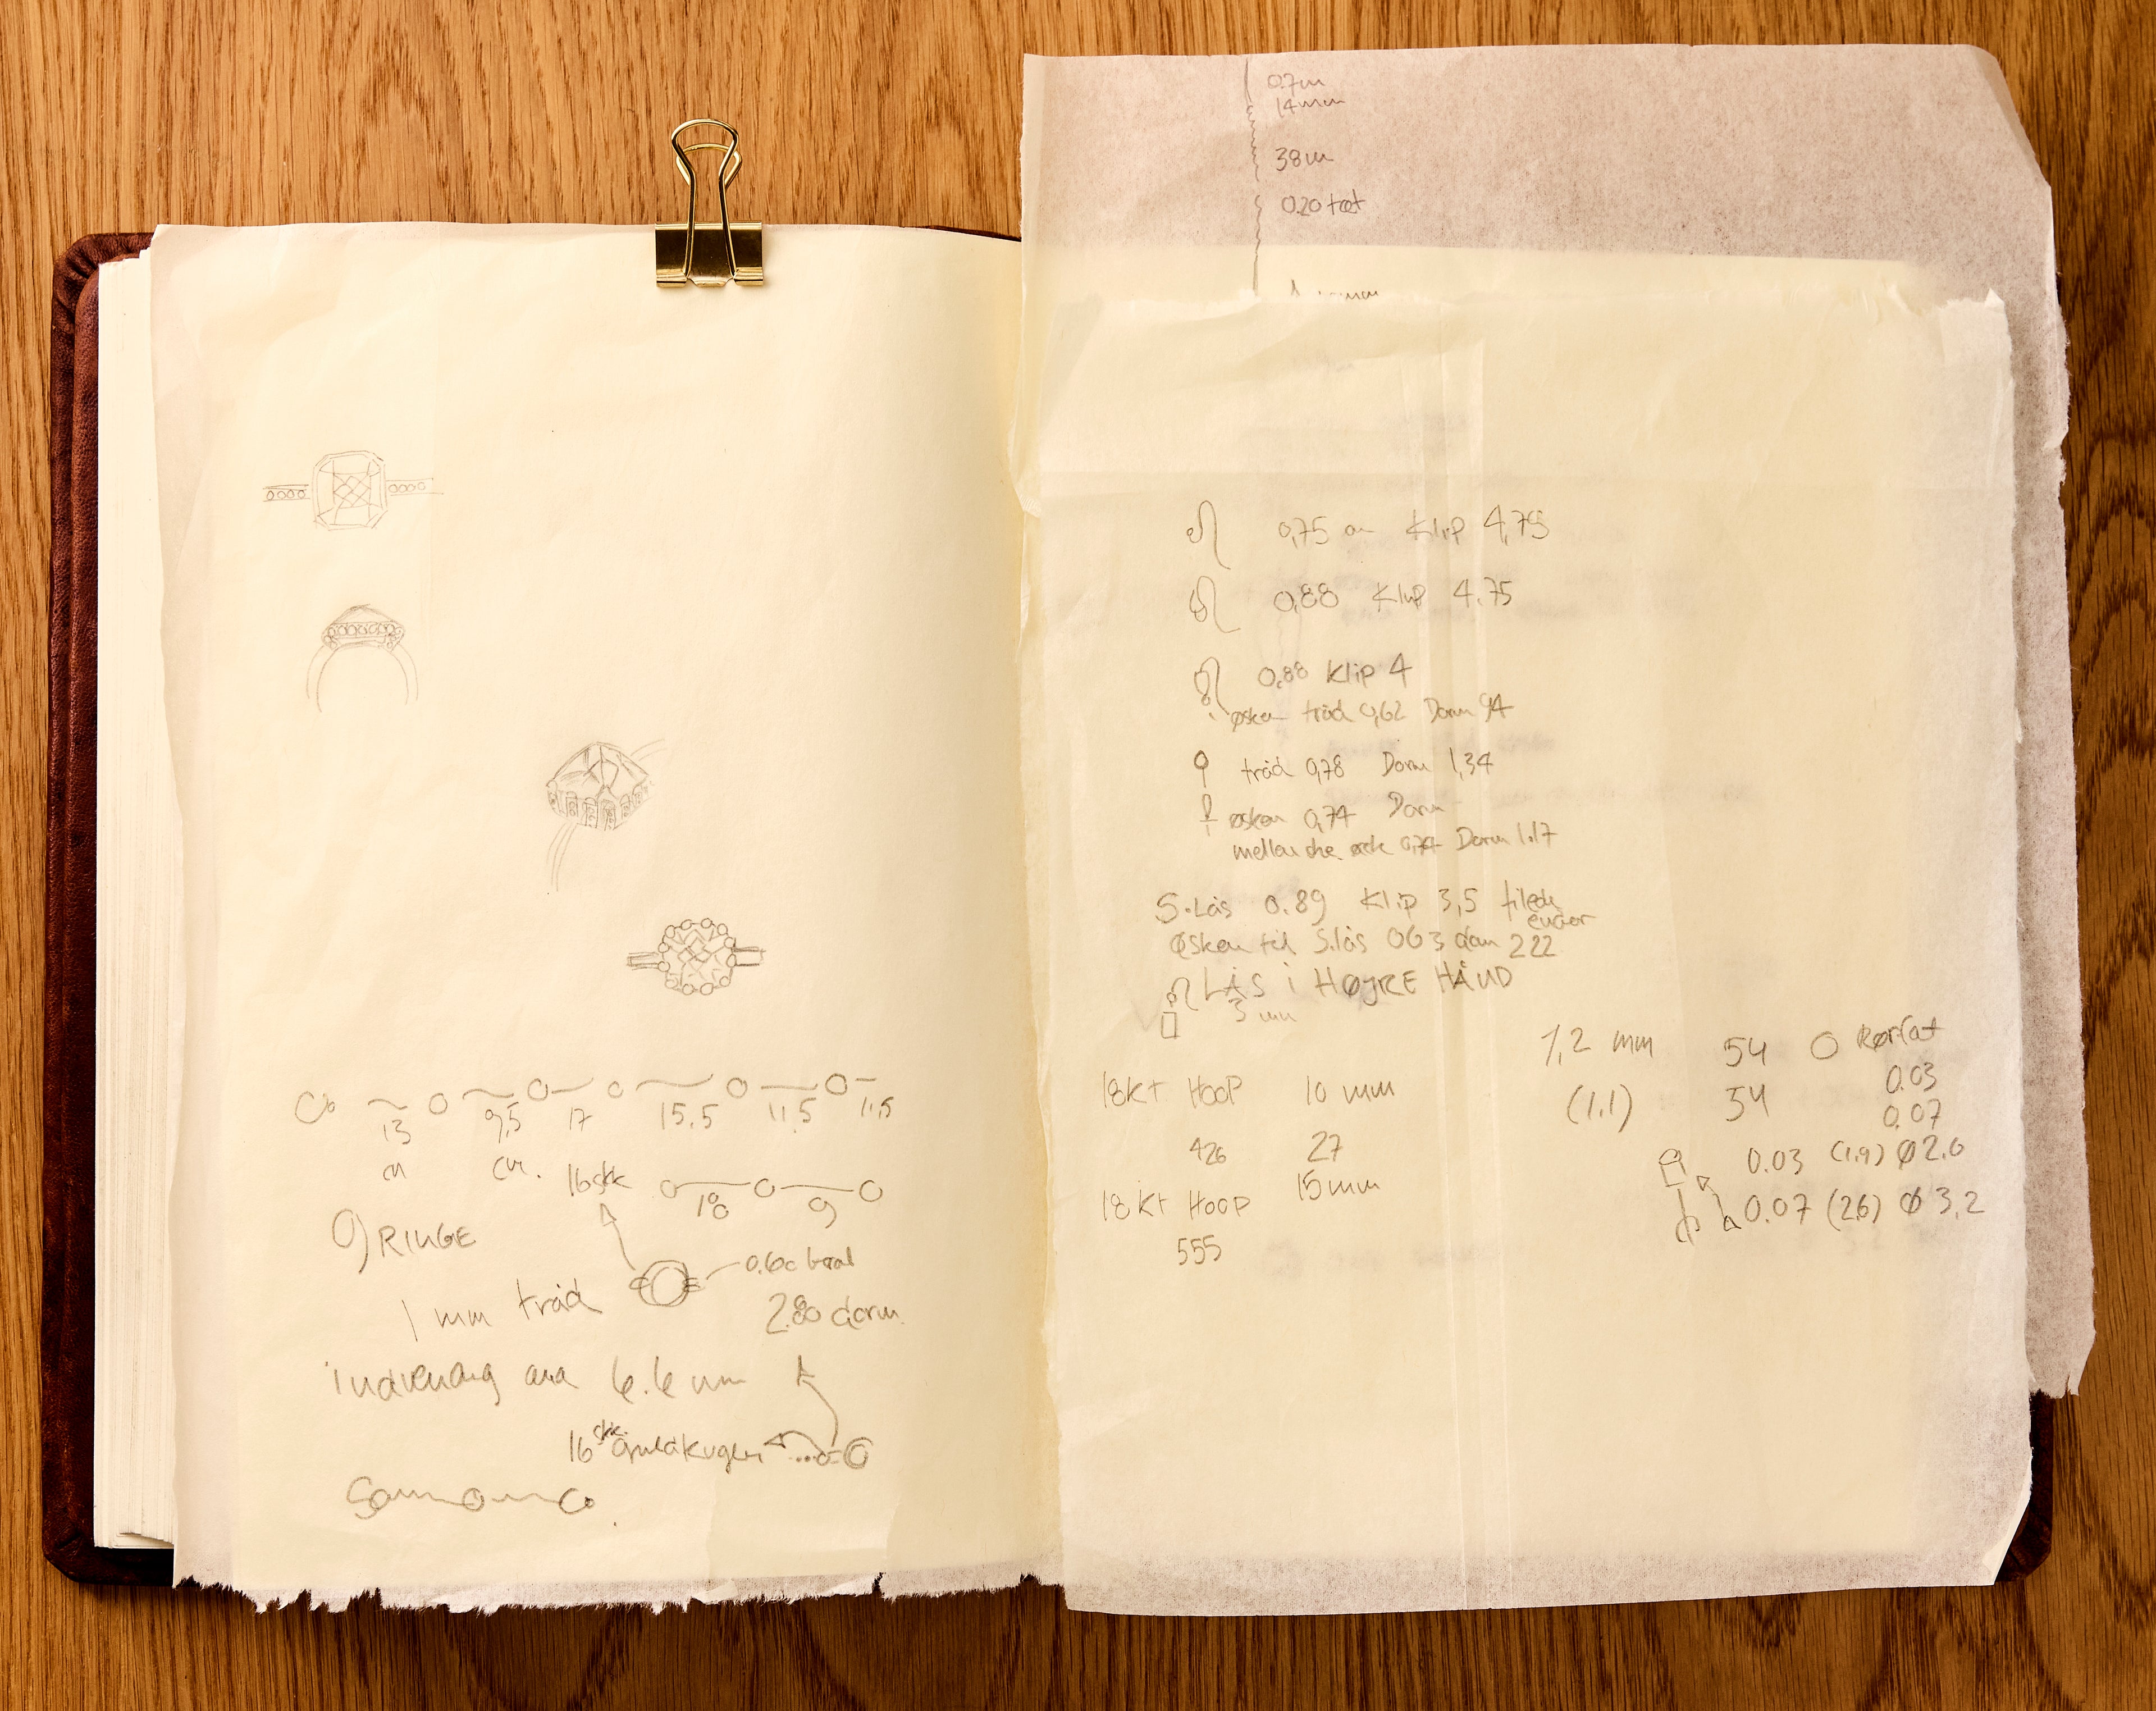 13 9,5 17 15.5 11,5 11,5
cm cm.
16stk 18 9
9 RINGE
0.60 boral
1 mm tråd
2.80 dorn.
indvendig dia 6.6 mm
16 stk. guldkugler
0.7m
14mm
38m
0.20 tæt
0,75 Klip 4,75
0,88 Klip 4.75
0,88 Klip 4
øsken tråd 0,62 Dorn 94
tråd 0,78 Dorn 1,34
øsken 0,74 Dorn
0,74 Dorn 1.17
S.Lås 0.89 Klip 3,5 filede
ender
Øsken til S.lås 063 dorn 222
LÅS i HØJRE HÅND
3 mm
1,2 mm 54 Rørfat
18kt HOOP 10 mm (1.1) 54 0.03
0.07
426 27 0.03 (1.9) Ø2.0
18kt HOOP 15mm 0.07 (26) Ø 3,2
555